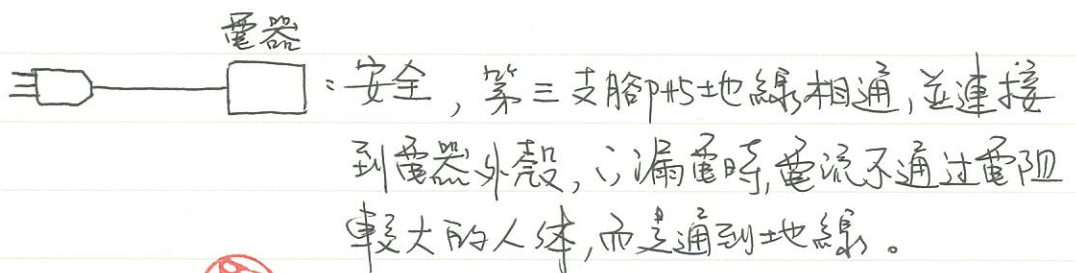 電器
：安全，第三支腳PH5地線相通，並連接
到電器外殼，∴漏電時，電流不通过電阻
較大的人体，而是通到地線。